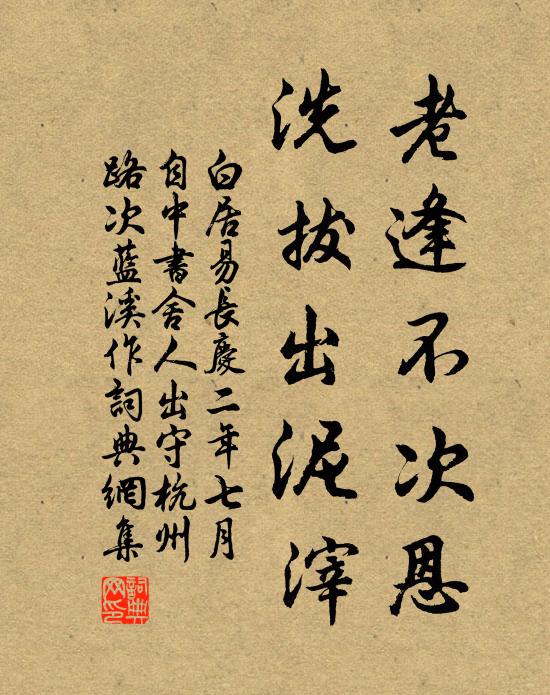 老逢不次恩
洗拔出泥滓
白居易長慶二年七月
自中書舍人出守杭州
路次藍溪作詞典網集
詞典网印